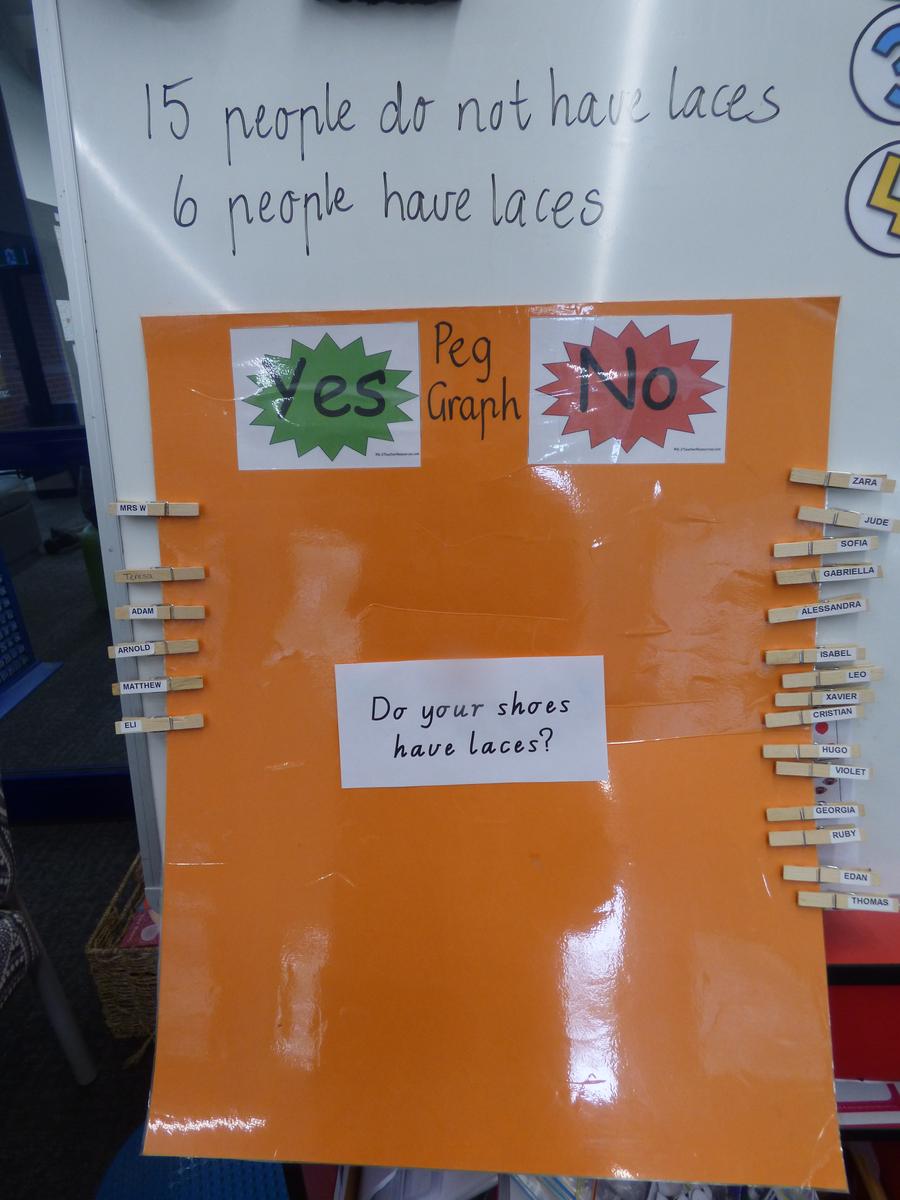 15 people do not have laces
6 people have laces
Yes
Peg
Graph
No
Do your shoes
have laces?
MRS W
Teresa
ADAM
ARNOLD
MATTHEW
ELI
ZARA
JUDE
SOFIA
GABRIELLA
ALESSANDRA
ISABEL
LEO
XAVIER
CRISTIAN
HUGO
VIOLET
GEORGIA
RUBY
EDAN
THOMAS
3
4